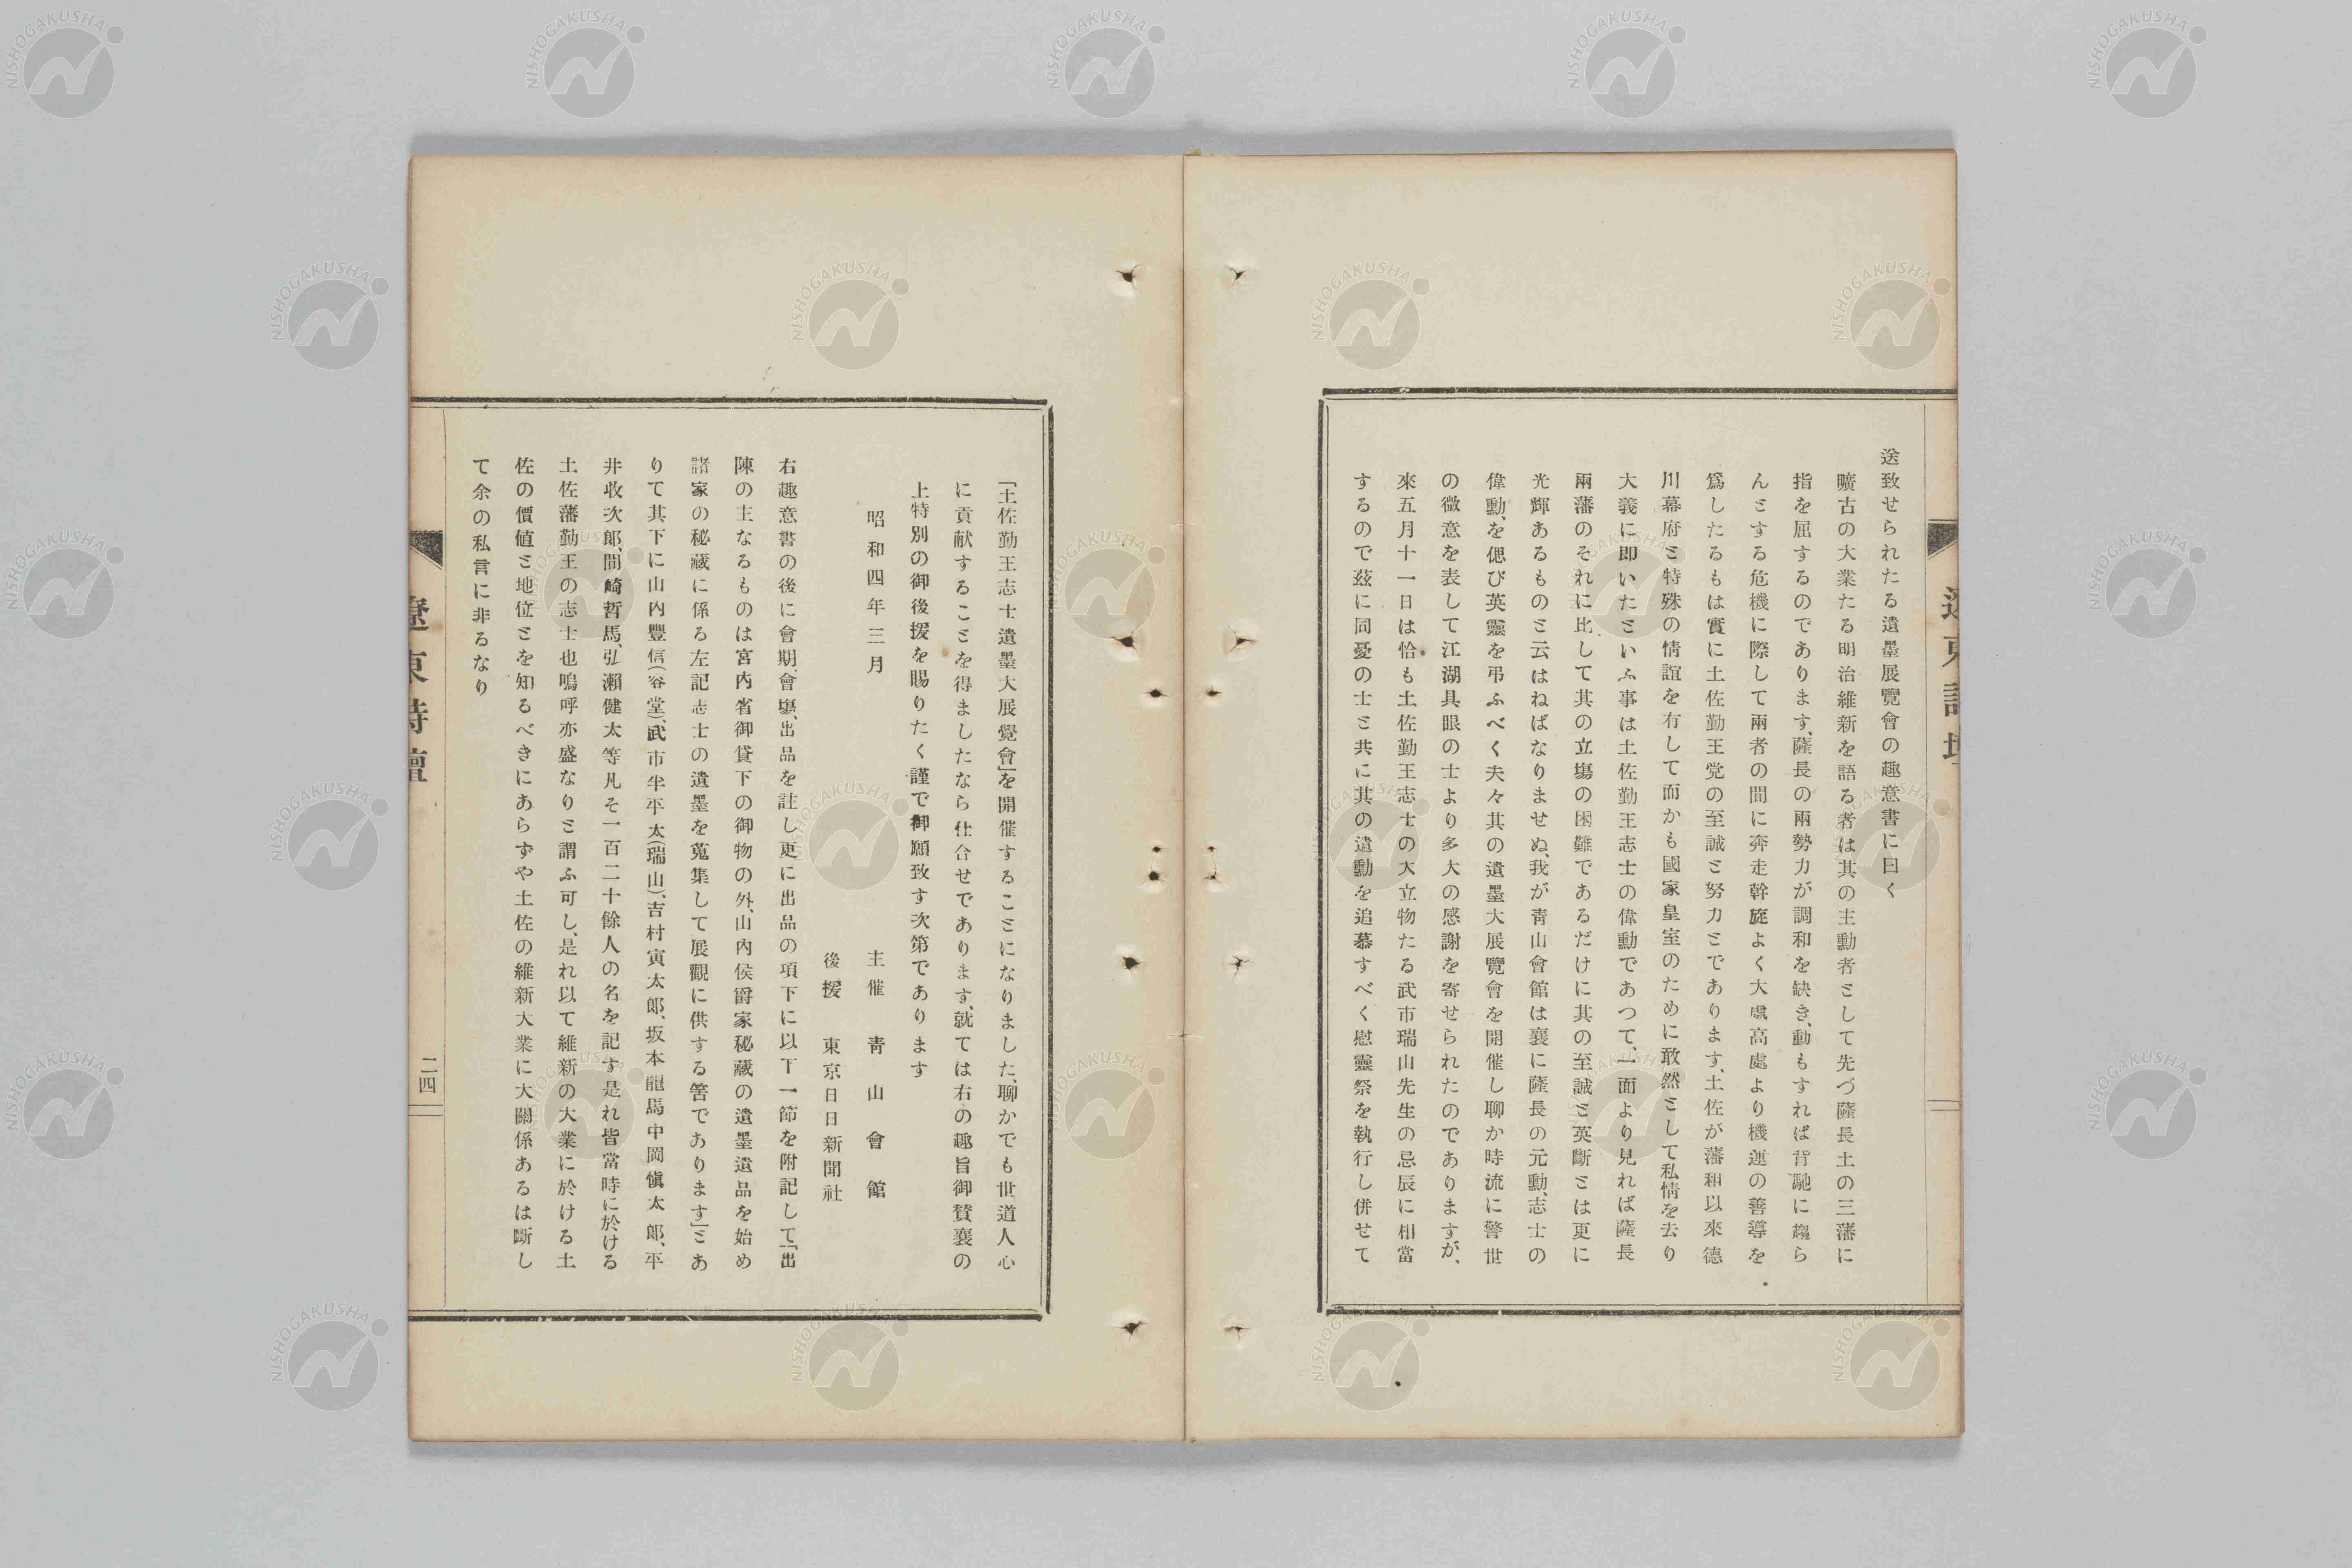 送致せられたる遺墨展覽會の趣意書に曰く
曠古の大業たる明治維新を語る者は其の主動者として先づ薩長土の三藩に
指を屈するのであります、薩長の兩勢力が調和を缺き、動もすれば背馳に趨ら
んとする危機に際して兩者の間に奔走幹旋よく大處高處より機運の善導を
爲したるもは實に土佐勤王党の至誠と努力とであります、土佐が藩和以來德
川幕府と特殊の情誼を有して而かも國家皇室のために敢然として私情を去り
大義に即いたといふ事は土佐勤王志士の偉動であつて、一面より見れば薩長
兩藩のそれに比して其の立塲の困難であるだけに其の至誠と英斷とは更に
光輝あるものと云はねばなりませぬ、我が靑山會館は襄に薩長の元勳、志士の
偉勳、を偲び英靈を弔ふべく夫々其の遺墨大展覽會を開催し聊か時流に警世
の微意を表して江湖具眼の士より多大の感謝を寄せられたのでありますが、
來五月十一日は恰も土佐勤王志士の大立物たる武市瑞山先生の忌辰に相當
するので茲に同憂の士と共に其の遺勳を追慕すべく慰靈祭を執行し併せて
「土佐勤王志士遺墨大展覺會」を開催することになりました、聊かでも世道人心
に貢献することを得ましたなら仕合せであります、就ては右の趣旨御賛襄の
上特別の御後援を賜りたく謹で御願致す次第であります
昭和四年三月
主催 靑山會館
後援 東京日日新聞社
右趣意書の後に會期、會塲、出品を註し更に出品の項下に以下一節を附記して「出
陳の主なるものは宮內省御貸下の御物の外、山內侯爵家秘藏の遺墨遺品を始め
諸家の秘藏に係る左記志士の遺墨を蒐集して展觀に供する筈であります」とあ
りて其下に山內豐信(容堂)、武市半平太(瑞山)、吉村寅太郎、坂本龍馬中岡愼太郎、平
井收次郎、間崎哲馬、弘瀨健太等凡そ一百二十餘人の名を記す是れ皆當時に於ける
土佐藩勤王の志士也鳴呼亦盛なりと謂ふ可し、是れ以て維新の大業に於ける土
佐の價値と地位とを知るべきにあらずや土佐の維新大業に大關係あるは斷し
て余の私言に非るなり
遼東詩壇
二四